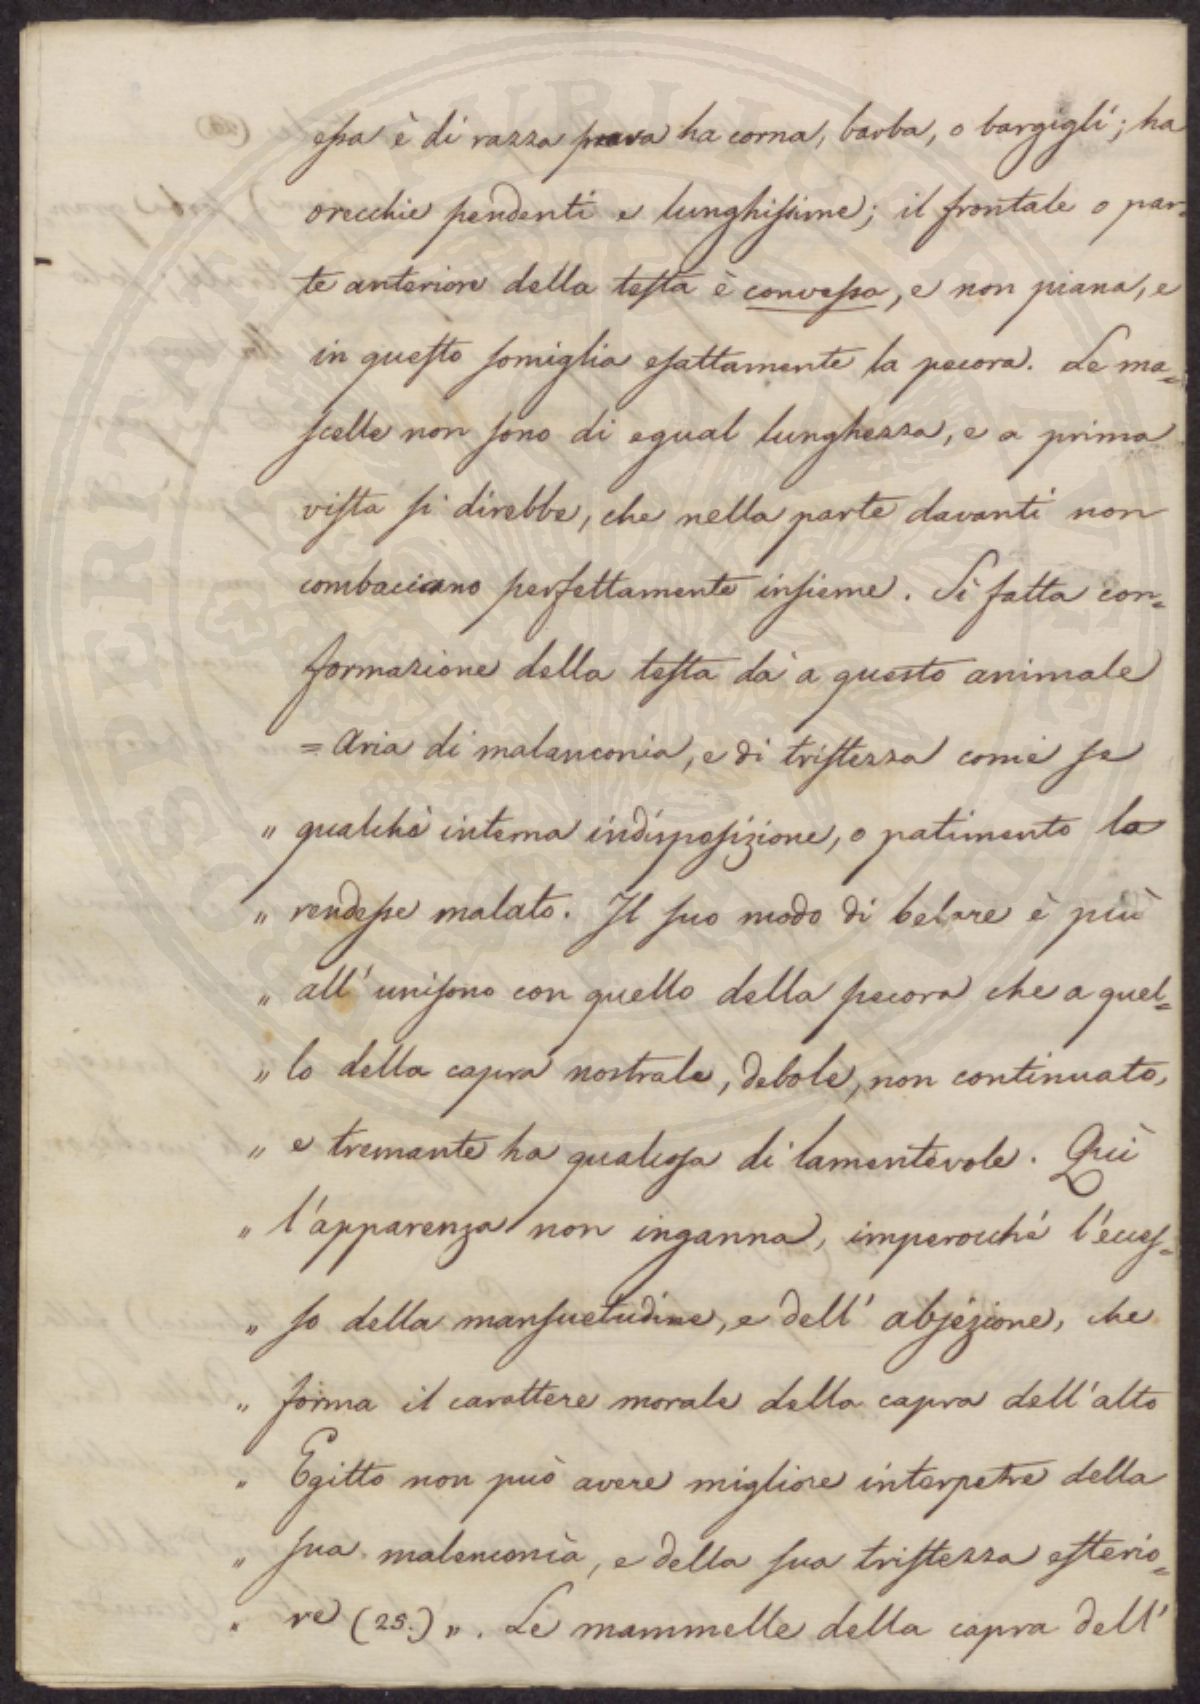 essa è di razza prava ha corna, barba, o bargigli; ha
orecchie pendenti e lunghissime; il frontale o par-
te anteriore della testa è convessa, e non piana, e
in questo somiglia esattamente la pecora. Le ma=
scelle non sono di egual lunghezza, e a prima
vista si direbbe, che nella parte davanti non
combaciano perfettamente insieme. Sì fatta con=
formazione della testa dà a questo animale
= Aria di malanconia, e di tristezza come se
" qualchè interna indisposizione, o patimento lo
" rendesse malato. Il suo modo di belare è più
" all' unisono con quello della pecora che a quel=
" lo della capra nostrale, debole, non continuato,
" e tremante ha qualcosa di lamentevole. Quì
" l'apparenza non inganna, imperocché l'ecces=
" so della mansuetudine, e dell' abjezione, che
" forma il carattere morale della capra dell'alto
" Egitto non può avere migliore interpetre della
" sua malenconia, e della sua tristezza esterio=
" re (25.) ". Le mammelle della capra dell'